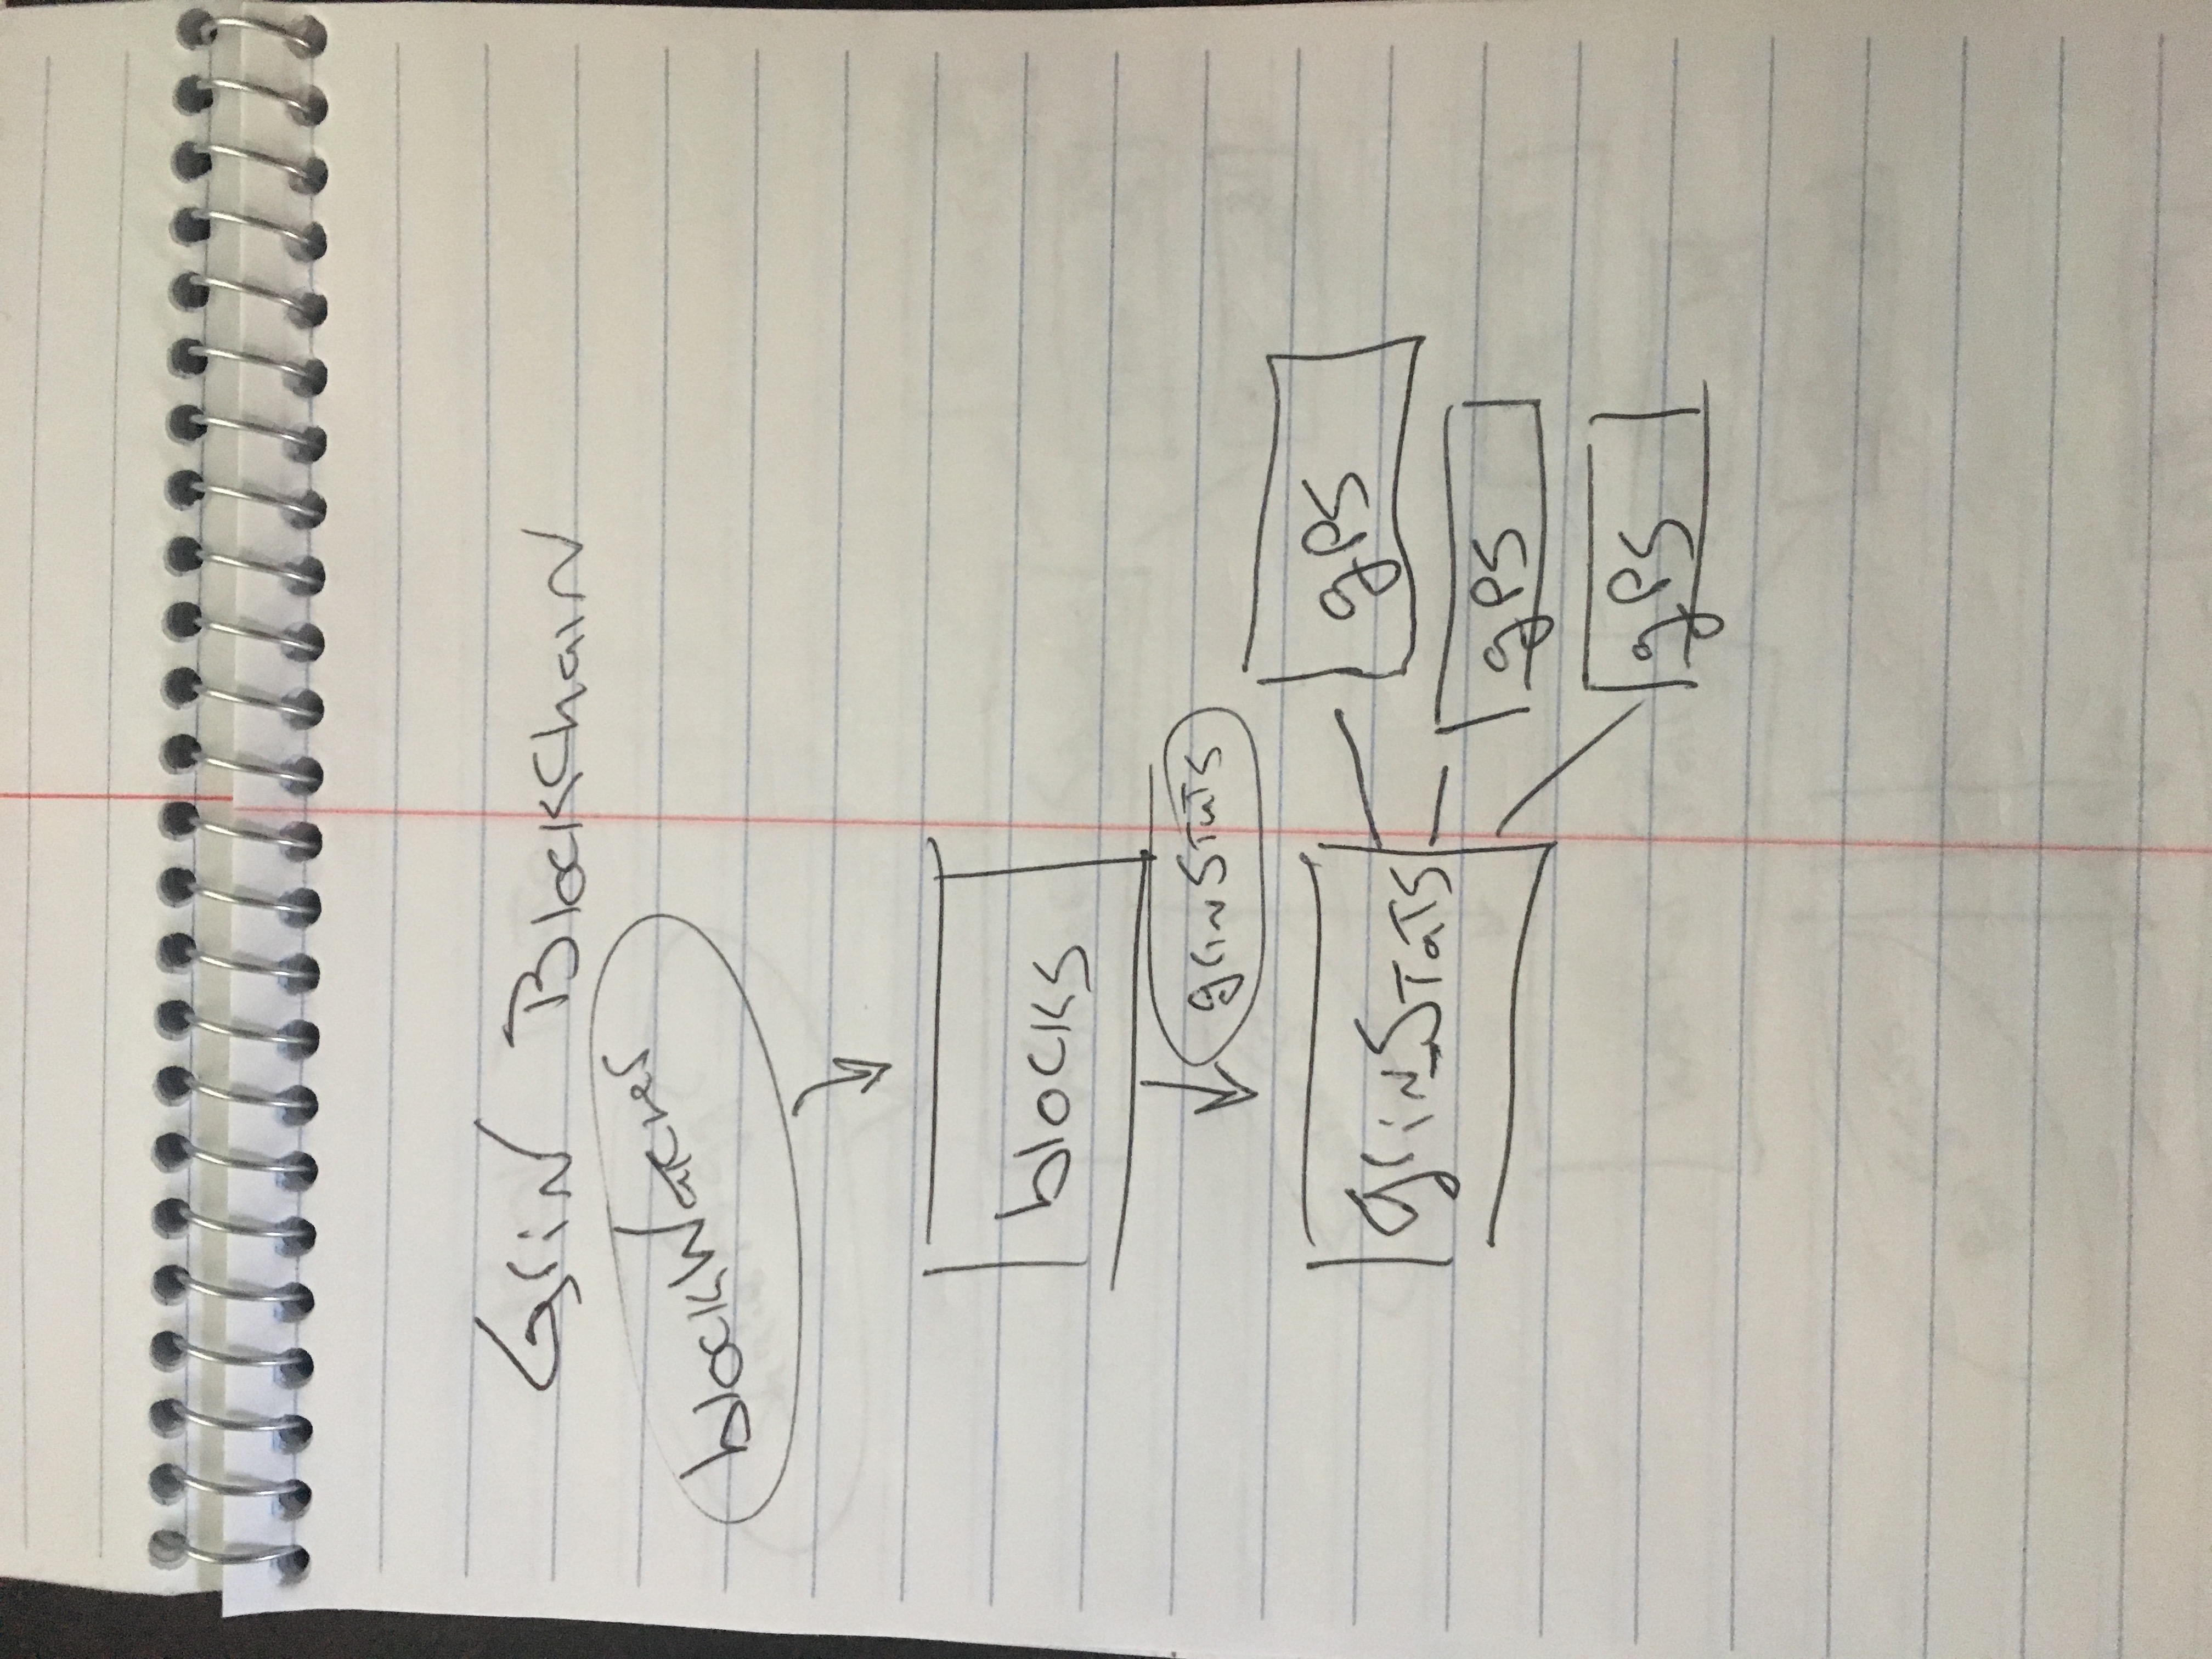 GriN BlockChaiN
blockWatcher
blocks
grinStats
grin_Stats
gps
gps
gps